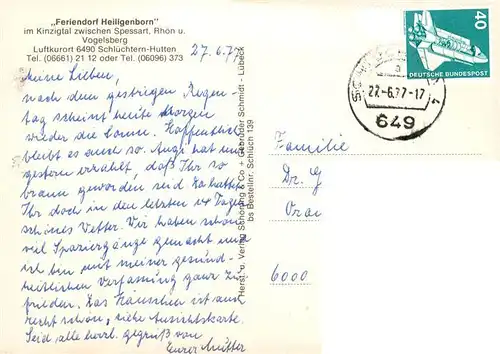 „Feriendorf Heiligenborn"
im Kinzigtal zwischen Spessart, Rhön u.
Vogelsberg
Luftkurort 6490 Schlüchtern-Hutten
Tel. (06661) 21 12 oder Tel. (06096) 373
27.6.77
Meine Lieben,
nach dem gestrigen Regen-
tag scheint heute Morgen
wieder die Sonne. Hoffentlich
bleibt es auch so. Angi hat uns
gestern erzählt, daß Ihr so
braun geworden seid. Da hattet
Ihr doch in den letzten 14 Tagen
schönes Wetter. Wir haben schon
viel Spaziergänge gemacht und
ich bin mit meiner gesund-
heitlichen Verfassung ganz zu-
frieden. Das Häuschen ist auch
recht schön, siehe Ansichtskarte.
Seid alle herzl. gegrüßt von
Eurer Mutter
Herst. u. Verlag Schöning & Co + Gebrüder Schmidt - Lübeck
bs Bestellnr. Schlüch 139
40
DEUTSCHE BUNDESPOST
27.-6.77-17
649
Familie
Dr. G
6000